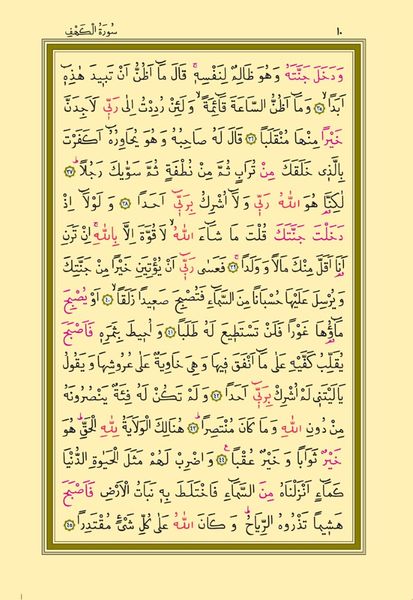 سُورَةُ الْكَهْفِ ١٠
وَدَخَلَ جَنَّتَهُ وَهُوَ ظَالِمٌ لِنَفْسِهِۚ قَالَ مَٓا اَظُنُّ اَنْ تَب۪يدَ هٰذِه۪ٓ
اَبَدًاۙ ﴿٣٥﴾ وَمَٓا اَظُنُّ السَّاعَةَ قَٓائِمَةًۙ وَلَئِنْ رُدِدْتُ اِلٰى رَبّ۪ي لَاَجِدَنَّ
خَيْرًا مِنْهَا مُنْقَلَبًاۚ ﴿٣٦﴾ قَالَ لَهُ صَاحِبُهُ وَهُوَ يُحَاوِرُهُٓ اَكَفَرْتَ
بِالَّذ۪ي خَلَقَكَ مِنْ تُرَابٍ ثُمَّ مِنْ نُطْفَةٍ ثُمَّ سَوّٰيكَ رَجُلًاۜ ﴿٣٧﴾
لٰكِنَّا۬ هُوَ اللّٰهُ رَبّ۪ي وَلَٓا اُشْرِكُ بِرَبّ۪ٓي اَحَدًا ﴿٣٨﴾ وَلَوْلَٓا اِذْ
دَخَلْتَ جَنَّتَكَ قُلْتَ مَا شَٓاءَ اللّٰهُۙ لَا قُوَّةَ اِلَّا بِاللّٰهِۚ اِنْ تَرَنِ
اَنَا۬ اَقَلَّ مِنْكَ مَالًا وَوَلَدًاۚ ﴿٣٩﴾ فَعَسٰى رَبّ۪ٓي اَنْ يُؤْتِيَنِ خَيْرًا مِنْ جَنَّتِكَ
وَيُرْسِلَ عَلَيْهَا حُسْبَانًا مِنَ السَّمَٓاءِ فَتُصْبِحَ صَع۪يدًا زَلَقًاۙ ﴿٤٠﴾ اَوْ يُصْبِحَ
مَٓاؤُ۬هَا غَوْرًا فَلَنْ تَسْتَط۪يعَ لَهُ طَلَبًا ﴿٤١﴾ وَاُح۪يطَ بِثَمَرِه۪ فَاَصْبَحَ
يُقَلِّبُ كَفَّيْهِ عَلٰى مَٓا اَنْفَقَ ف۪يهَا وَهِيَ خَاوِيَةٌ عَلٰى عُرُوشِهَا وَيَقُولُ
يَا لَيْتَن۪ي لَمْ اُشْرِكْ بِرَبّ۪ٓي اَحَدًا ﴿٤٢﴾ وَلَمْ تَكُنْ لَهُ فِئَةٌ يَنْصُرُونَهُ
مِنْ دُونِ اللّٰهِ وَمَا كَانَ مُنْتَصِرًاۜ ﴿٤٣﴾ هُنَالِكَ الْوَلَايَةُ لِلّٰهِ الْحَقِّۜ هُوَ
خَيْرٌ ثَوَابًا وَخَيْرٌ عُقْبًا۟ ﴿٤٤﴾ وَاضْرِبْ لَهُمْ مَثَلَ الْحَيٰوةِ الدُّنْيَا
كَمَٓاءٍ اَنْزَلْنَاهُ مِنَ السَّمَٓاءِ فَاخْتَلَطَ بِه۪ نَبَاتُ الْاَرْضِ فَاَصْبَحَ
هَش۪يمًا تَذْرُوهُ الرِّيَاحُۜ وَكَانَ اللّٰهُ عَلٰى كُلِّ شَيْءٍ مُقْتَدِرًا ﴿٤٥﴾